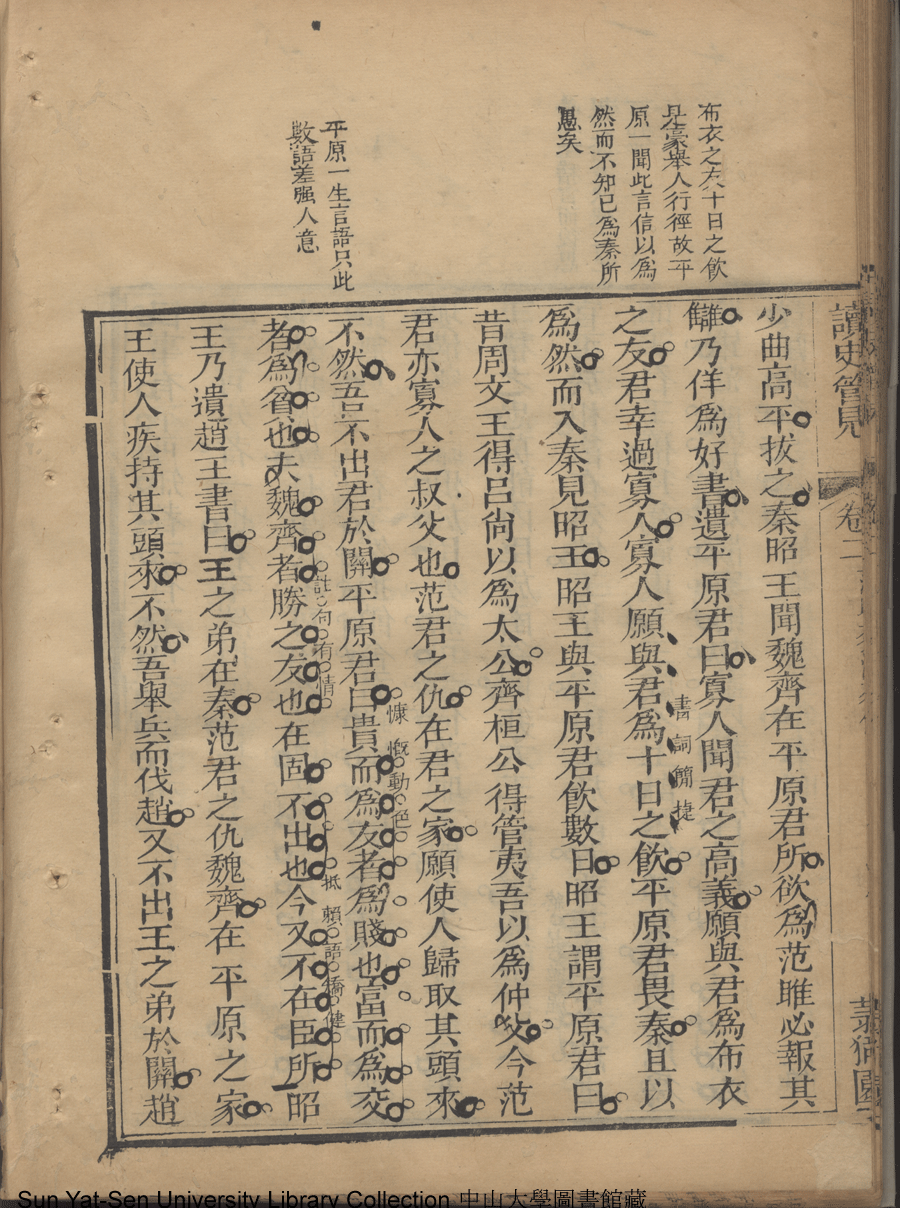 讀史管見
卷二
布衣之友十日之飲
是豪舉人行徑故平
原一聞此言信以爲
然而不知已爲秦所
愚矣
平原一生言語只此
數語差强人意
少曲高平拔之秦昭王聞魏齊在平原君所欲爲范雎必報其
讎乃佯爲好書遺平原君曰寡人聞君之高義願與君爲布衣
書詞簡捷
之友君幸過寡人寡人願與君爲十日之飲平原君畏秦且以
爲然而入秦見昭王昭王與平原君飲數日昭王謂平原君曰
昔周文王得呂尙以爲太公齊桓公得管夷吾以爲仲父今范
君亦寡人之叔父也范君之仇在君之家願使人歸取其頭來
慷慨動色
不然吾不出君於關平原君曰貴而爲友者爲賤也富而爲交
註句有情
抵賴語猶健
者爲貧也夫魏齊者勝之友也在固不出也今又不在臣所昭
王乃遺趙王書曰王之弟在秦范君之仇魏齊在平原之家
王使人疾持其頭來不然吾舉兵而伐趙又不出王之弟於關趙
Sun Yat-Sen University Library Collection 中山大學圖書館藏